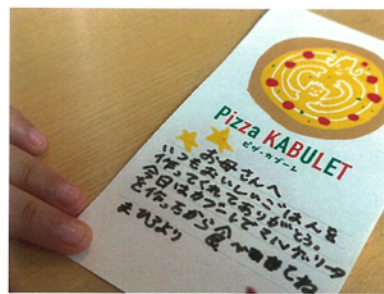 Pizza KABULET
ピザ・カブーレ
お母さんへ
いつもおいしいごはんを
作ってくれてありがとう。
今日はカブレでマルゲリータ
を作ったから食べてね
まひるより